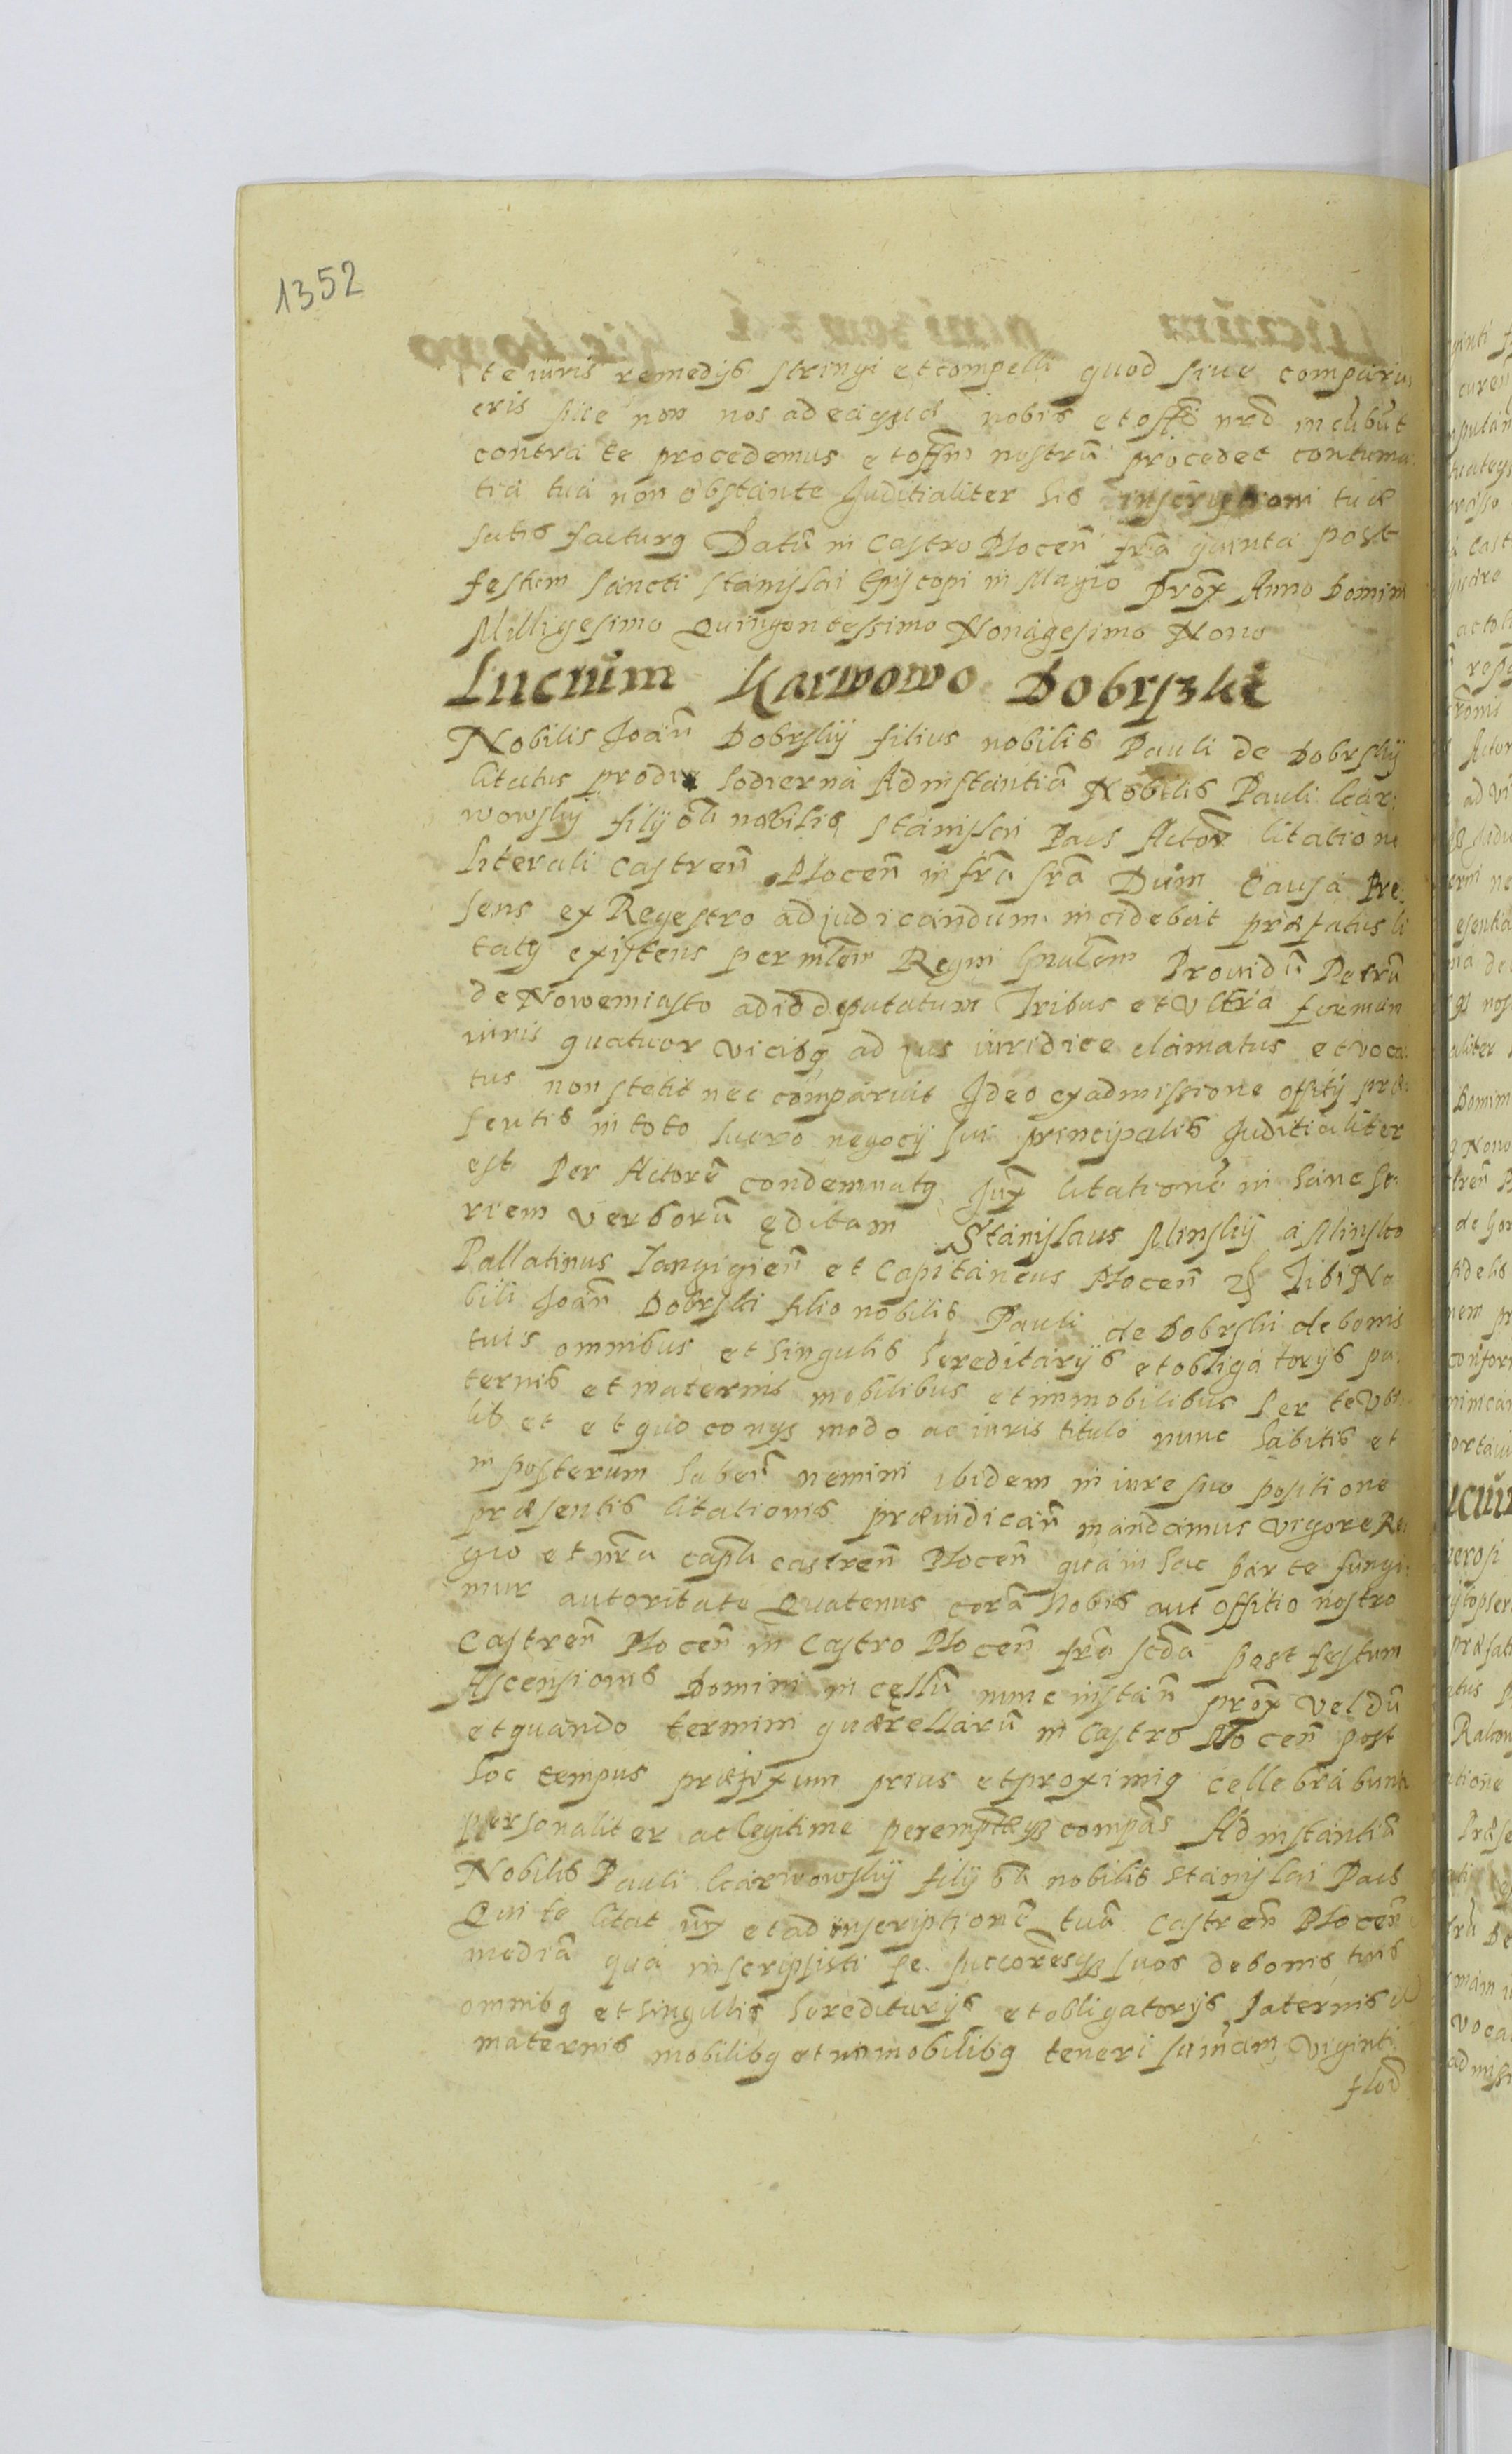 1352
te iuris remedijs stringi et compelli quod siue comparu
eris siue non nos ad ea quæ nobis et offō nr̄o incūbūt
contra te procedemus et offm̄ nostrū procedet contuma
tia tua non obstante Juditialiter his inscriptioni tuæ
satis facturq Datū in Castro Plocen̄ fr̄ia quinta post
festum sancti Stanislai Episcopi in Magio prox̄ Anno Domini
Milligesimo Quingentessimo Nonagesimo Nono
Lucrum Karwowo Dobrski
Nobilis Joan̄ Dobrskij filius nobilis Pauli de Dobrskij
citatus pro die hodierna Ad instantiā Nobilis Pauli Kar:
wowskij filij ōli nobilis Stanislai Pacis Actor̄ citatione
literali castren̄ Plocen̄ infra sr̄a Dum Causa Præ
sens ex Regestro ad judicandum incidebat præfatus ci
tatq existens per mīlem Regni Gn̄alem Prouidū Petrū
de Nowemiasto ad id deputatum Tribus et Vltra formam
iuris quatuor vicibq ad jus iuridice clamatus et voca
tus non stetit nec comparuit Ideo ex admissione offitij præ
sentis in toto lucro negocij sui principalis Juditialiter
est Per Actorē condemnatq Jux̄ citationē in hanc se
riem verborū ęditam Stanislaus Minskij a Minsko
Pallatinus Langigien̄ et Capitaneus Plocen̄ Tibi No
bili Joan̄ Dobrski filio nobilis Pauli de Dobrskii de bonis
tuis omnibus et singulis hereditarijs et obligatorijs pa
ternis et maternis mobilibus et immobilibus per te Vbi
lib et et quocunqs modo ac iuris titulo nunc habitis et
in posterum haben̄ nemini ibidem in iure suo positione
præsentis citationis præiudican̄ mandamus vigore Re
gio et nr̄a capl̄i castren̄ Plocen̄ qua in hac parte fungi
mur autoritate Quatenus corā Nobis aut Offitio nostro
Castren̄ Plocen̄ in Castro Plocen̄ fr̄ia sc̄da post festum
Ascensionis Domini in cęllū nunc instan̄ prox̄ vel dū
et quando termini quærellarū in Castro Plocen̄ post
hoc tempus præfixum prius et proximiq cellebrabuntr
personaliter ac legitime perempt̄eqs compas Ad instantiā
Nobilis Pauli Karwowskij filij ōli nobilis Stanislai Pacis
Qui te citat iux̄ et ad inscriptionē tuā Castren̄ Plocen̄
mediā qua inscripsisti se succoresqs suos de bonis tuis
omnibq et singullis hereditarijs et obligatorijs paternis et
maternis mobilibq et immobilibq teneri sum̄am Viginti
flor̄